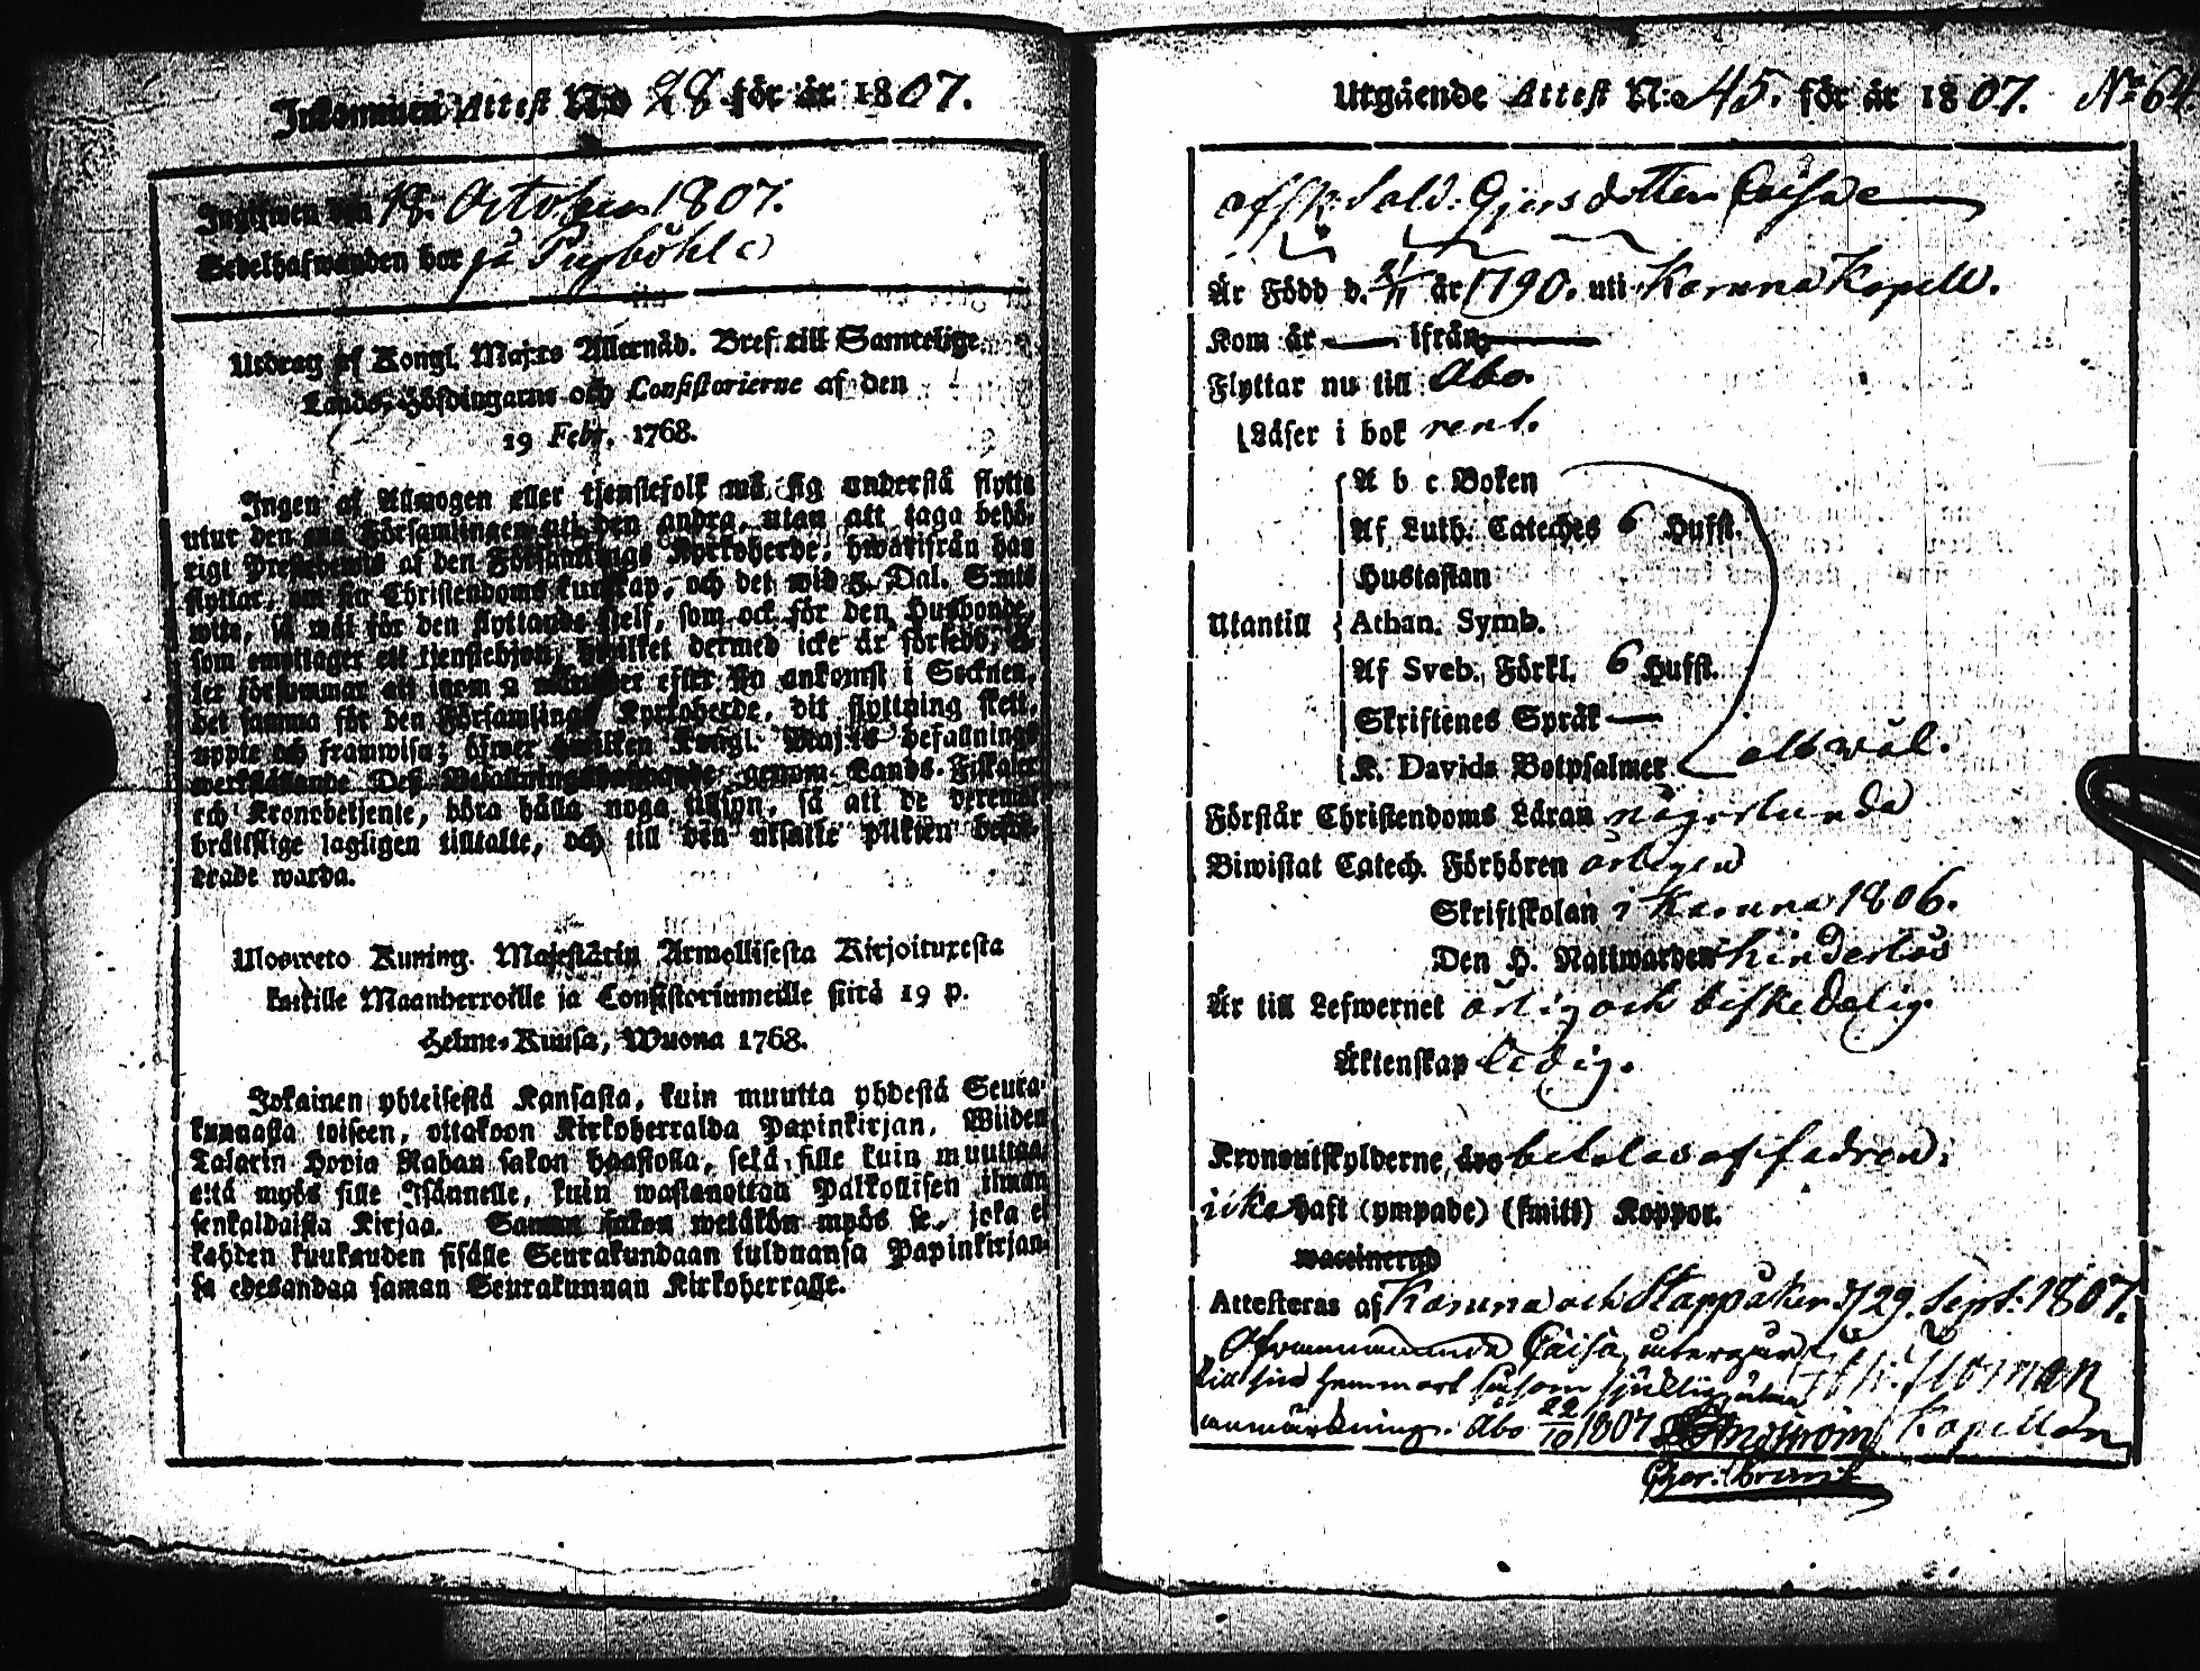 Inkommen Attest No 28 för år 1807.
Ingifwen den 18. October 1807.
Sedelhafwanden bor på Pipböhle
Utdrag af Kongl. Maj:ts Allernåd. Bref till Samtelige
Lands-Höfdingarne och Consistorierne af den
19 Febr. 1768.
Ingen af Allmogen eller tjenstefolk må sig understå flytta
utur den ena Församlingen uti den andra, utan att taga behö-
rigt Prestebewis af den Församlings Kyrkoherde, hwarifrån han
flyttar, om sin Christendoms kunskap, och det wid 5 Dal. S:mts
wite, så wäl för den flyttande sjelf, som ock för den Husbonde,
som emottager ett tjenstehjon, hwilket dermed icke är försedd, el-
ler försummar att inom 2 månader efter sin ankomst i Socknen,
det samma för den Församlings Kyrkoherde, dit flyttning skett,
uppte och framwisa; öfwer hwilken Kongl. Maj:ts befallnings
werkställande Deß Befallningshafwande genom Lands-Fiskaler
och Kronobetjente, böra hålla noga tillsyn, så att de deremot
bråttslige lagligen tilltalte, och till den utsatte plikten beför-
drade warda.
Ulosweto Kuning. Majestätin Armollisesta Kirjoituxesta
kaikille Maanherroille ja Consistoriumeille siitä 19 p.
Helme-Kuusa, Wuona 1768.
Jokainen yhteisestä Kansasta, kuin muutta yhdestä Seura-
kunnasta toiseen, ottakoon Kirkoherralda Papinkirjan, Wiiden
Talarin Hopia Rahan sakon haastolla, sekä sille kuin muuttaa
että myös sille Isännelle, kuin wastanottaa Palkollisen ilman
senkaldaista Kirjaa. Saman sakon wetäkön myös se, joka ei
kahden kuukauden sisälle Seurakundaan tulduansa Papinkirjan-
sa edesandaa saman Seurakunnan Kirkoherralle.
Utgående Attest N:o 45. för år 1807. No 64.
afsk: Sold: Gjersdotter Caisa
Är Född d. 21/11 år 1790. uti Karuna Kapell.
Kom år — ifrån —
Flyttar nu till Åbo.
Läser i bok rent.
A b c Boken
Af Luth. Cateches 6 Hufst.
Hustaflan
Utantill Athan. Symb.
Af Sveb. Förkl. 6 Hufst.
Skriftenes Språk —
K. Davids Botpsalmer allt wäl.
Förstår Christendoms Läran någorlunda
Biwistat Catech. Förhören årligen
Skriftskolan i Karuna 1806.
Den H. Nattwarden hinderlös
Är till Lefwernet ärlig och beskedelig.
Äktenskap ledig.
Kronoutskylderne äro betalas af fadren.
icke haft (ympade) (smitt) Koppor.
waccinerad
Attesteras af Karuna och Stappåker d/29. Sept: 1807.
Ofwannämnde Caisa, återgår
till sin hemmort såsom sjuklig, utan
anmärkning. Åbo 22/10 1807 Kapellan